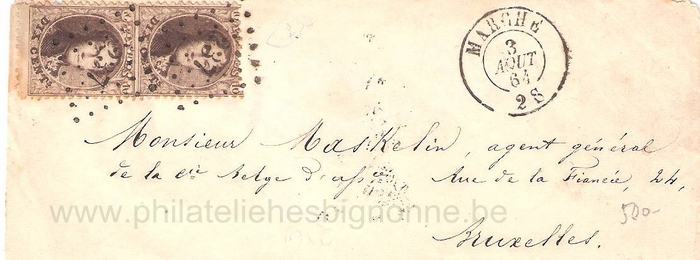 MARCHE
3
AOUT
64
2 S
DIX CENT
DIX CENT
Monsieur Maskelin, agent général
de la cie Belge d'assces Rue de la Fiancée, 24,
www.philateliehesbignonne.be
500-
Bruxelles.